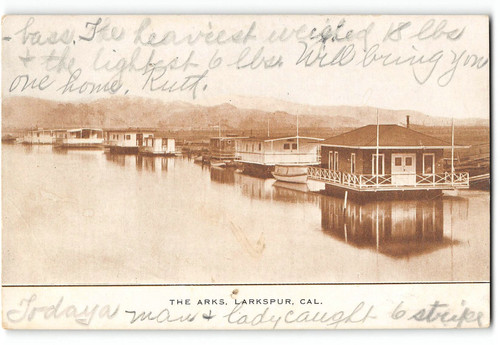 -bass. The heaviest weighed 18 lbs
+ the lightest 6 lbs. Will bring you
one home. Ruth.
THE ARKS, LARKSPUR, CAL.
Today a man + lady caught 6 stripe